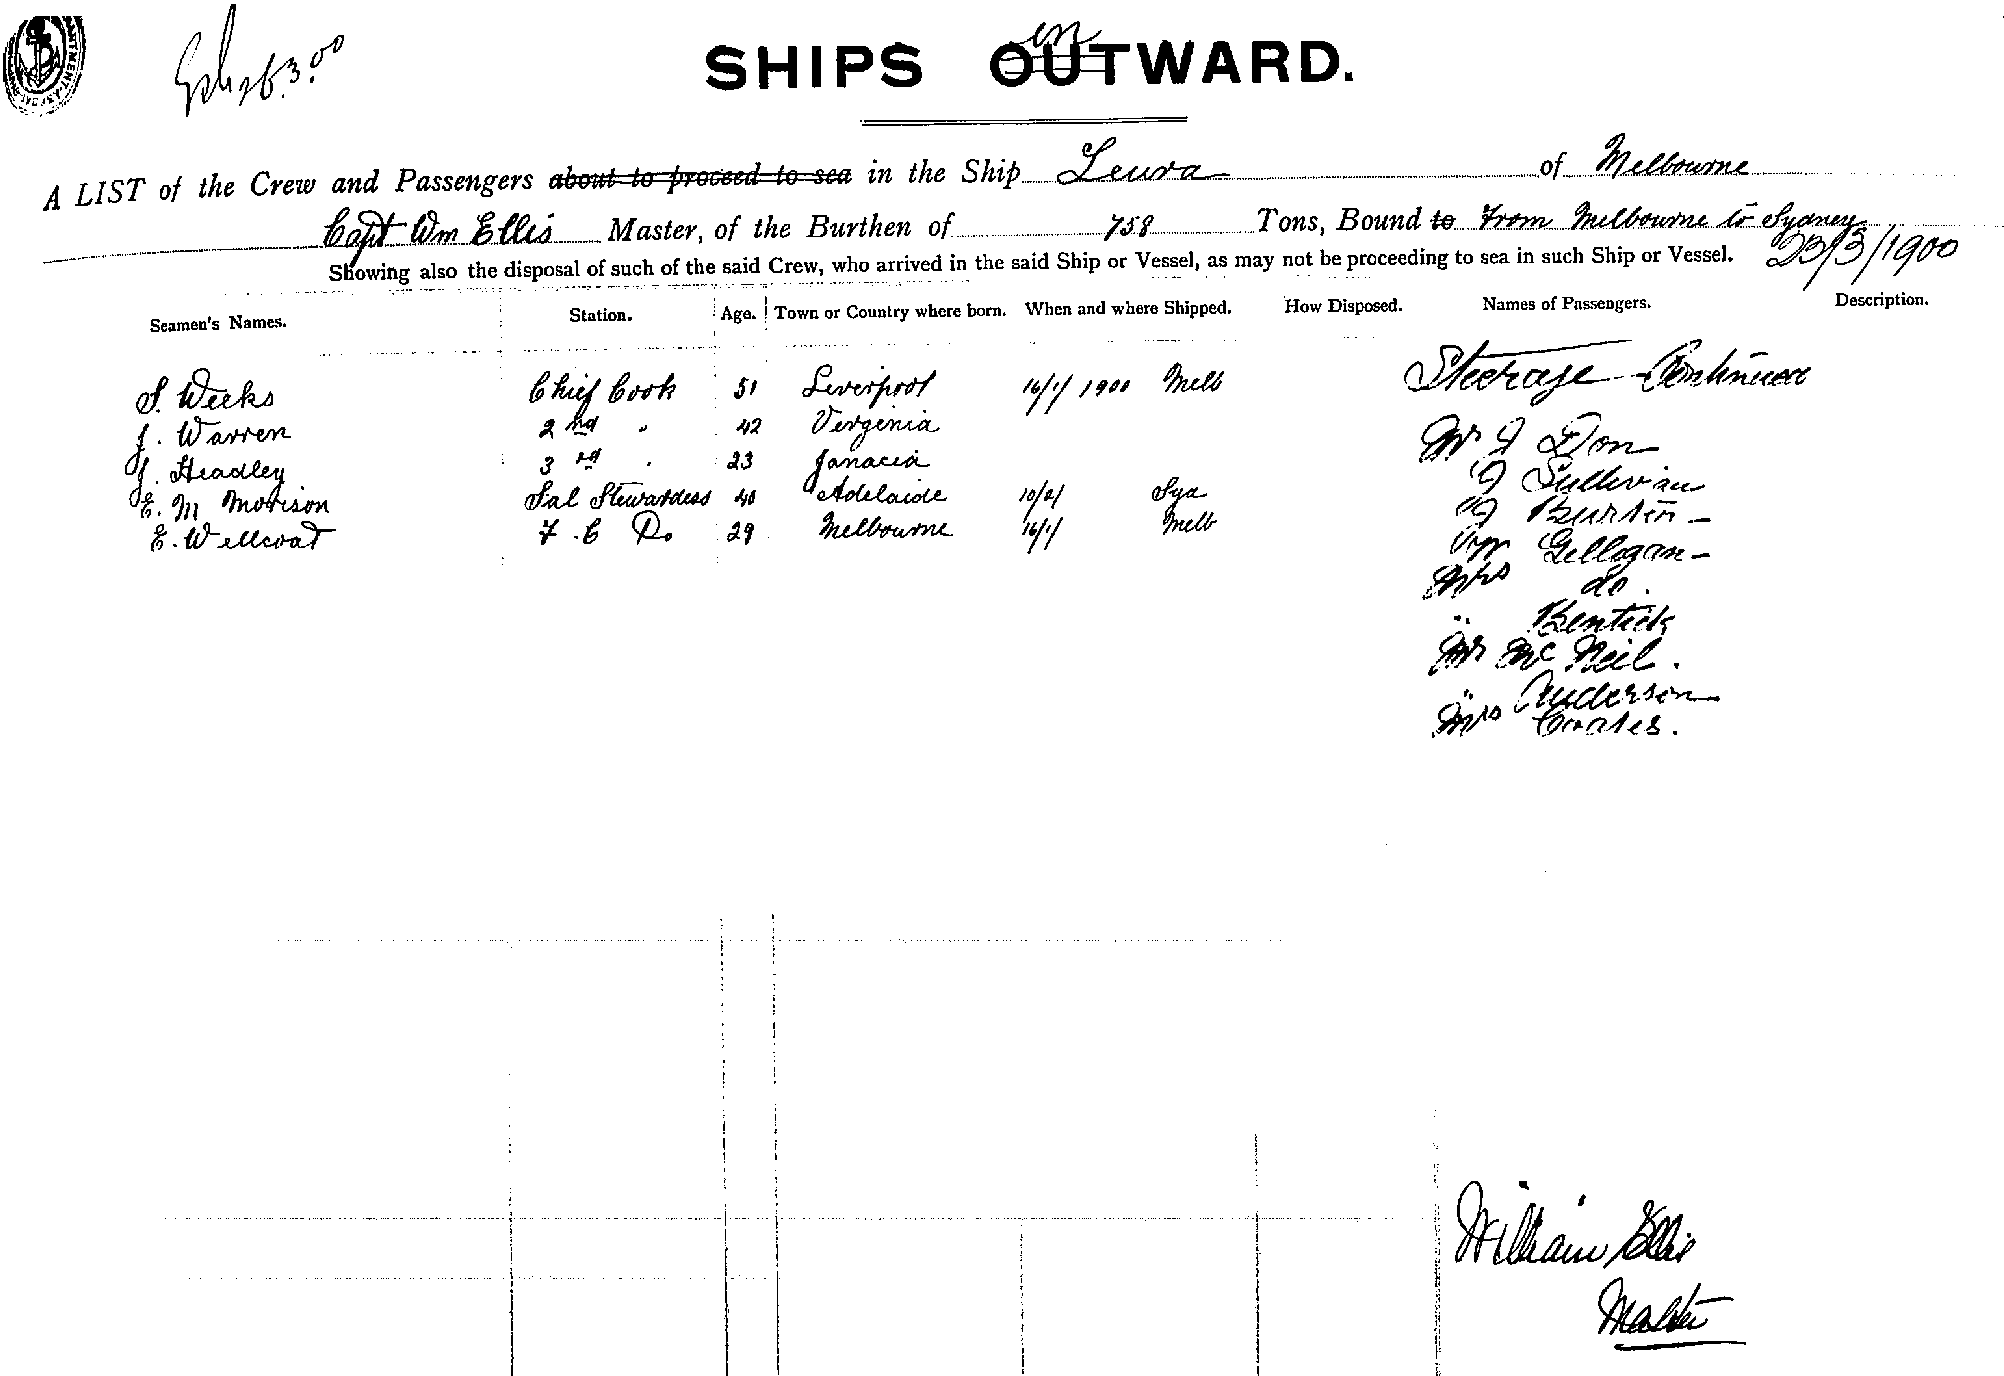 SHIPS OUTWARD.
in
A LIST of the Crew and Passengers about to proceed to sea in the Ship Leura of Melbourne
Capt Wm Ellis Master, of the Burthen of 758 Tons, Bound to From Melbourne to Sydney
Showing also the disposal of such of the said Crew, who arrived in the said Ship or Vessel, as may not be proceeding to sea in such Ship or Vessel. 23/3/1900
Seamen's Names. Station. Age. Town or Country where born. When and where Shipped. How Disposed. Names of Passengers. Description.
Steerage Continued
S. Weeks Chief Cook 51 Liverpool 16/1/1900 Melb
J. Warren 2nd " 42 Verginia
J. Headley 3rd " 23
E. M Morison Sal Stewardess 40 Adelaide 10/2/ Syd
E. Wellcoat F. C Do 29 Melbourne 16/1/ Melb
Mr J Don
J Sullivan
J Burtin
Gilligan
Mrs do.
" Bentick
Mr McNeil.
" Anderson
Mrs Coates.
William Ellis
Master